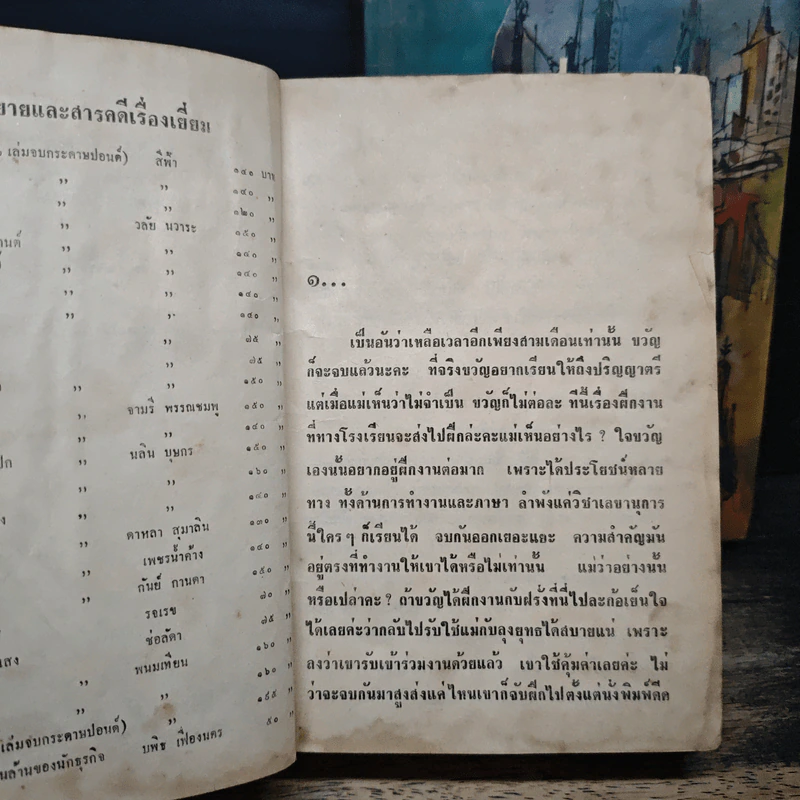 ยายและสารคดีเรื่องเยี่ยม
เล่มจบกระดาษปอนด์) สีฟ้า ๑๔๐ บาท
,, ,, ๑๙๐ ,,
,, ,, ๑๒๐ ,,
,, วลัย นวาระ ๑๕๐ ,,
นต์ ,, ,, ๑๔๐ ,,
,, ,, ๑๔๐ ,,
,, ,, ๑๔๐ ,,
,, ,, ๑๙๐ ,,
,, ๗๕ ,,
,, ๗๕ ,,
,, ,, ๑๕๐ ,,
,, จามรี พรรณชมพู ๑๕๐ ,,
,, ,, ๑๔๐ ,,
,, นลิน บุษกร ๑๕๐ ,,
,, ,, ๑๖๐ ,,
,, ,, ๑๔๐ ,,
,, ดาหลา สุมาลิน ๑๓๐ ,,
,, เพชรน้ำค้าง ๑๔๐ ,,
,, กันย์ กานดา ๑๕๐ ,,
รจเรข ๗๐ ,,
ช่อลัดา ๗๕ ,,
แสง พนมเทียน ๑๖๐ ,,
,, ,, ๑๖๐ ,,
เล่มจบกระดาษปอนด์) ,, ๑๙๕ ,,
นล้านของนักธุรกิจ บพิช เฟื่องนคร ๙๐ ,,
๑...
เป็นอันว่าเหลือเวลาอีกเพียงสามเดือนเท่านั้น ขวัญ
ก็จะจบแล้วนะคะ ที่จริงขวัญอยากเรียนให้ถึงปริญญาตรี
แต่เมื่อแม่เห็นว่าไม่จำเป็น ขวัญก็ไม่ต่อละ ทีนี้เรื่องฝึกงาน
ที่ทางโรงเรียนจะส่งไปฝึกล่ะคะแม่เห็นอย่างไร ? ใจขวัญ
เองนั้นอยากอยู่ฝึกงานต่อมาก เพราะได้ประโยชน์หลาย
ทาง ทั้งด้านการทำงานและภาษา ลำพังแค่วิชาเลขานุการ
นี้ใคร ๆ ก็เรียนได้ จบกันออกเยอะแยะ ความสำคัญมัน
อยู่ตรงที่ทำงานให้เขาได้หรือไม่เท่านั้น แม่ว่าอย่างนั้น
หรือเปล่าคะ ? ถ้าขวัญได้ฝึกงานกับฝรั่งที่นี่ไปละก้อเย็นใจ
ได้เลยค่ะว่ากลับไปรับใช้แม่กับลุงยุทธได้สบายแน่ เพราะ
ลงว่าเขารับเข้าร่วมงานด้วยแล้ว เขาใช้คุ้มค่าเลยค่ะ ไม่
ว่าจะจบกันมาสูงส่งแค่ไหนเขาก็จับฝึกไปตั้งแต่นั่งพิมพ์ดีด